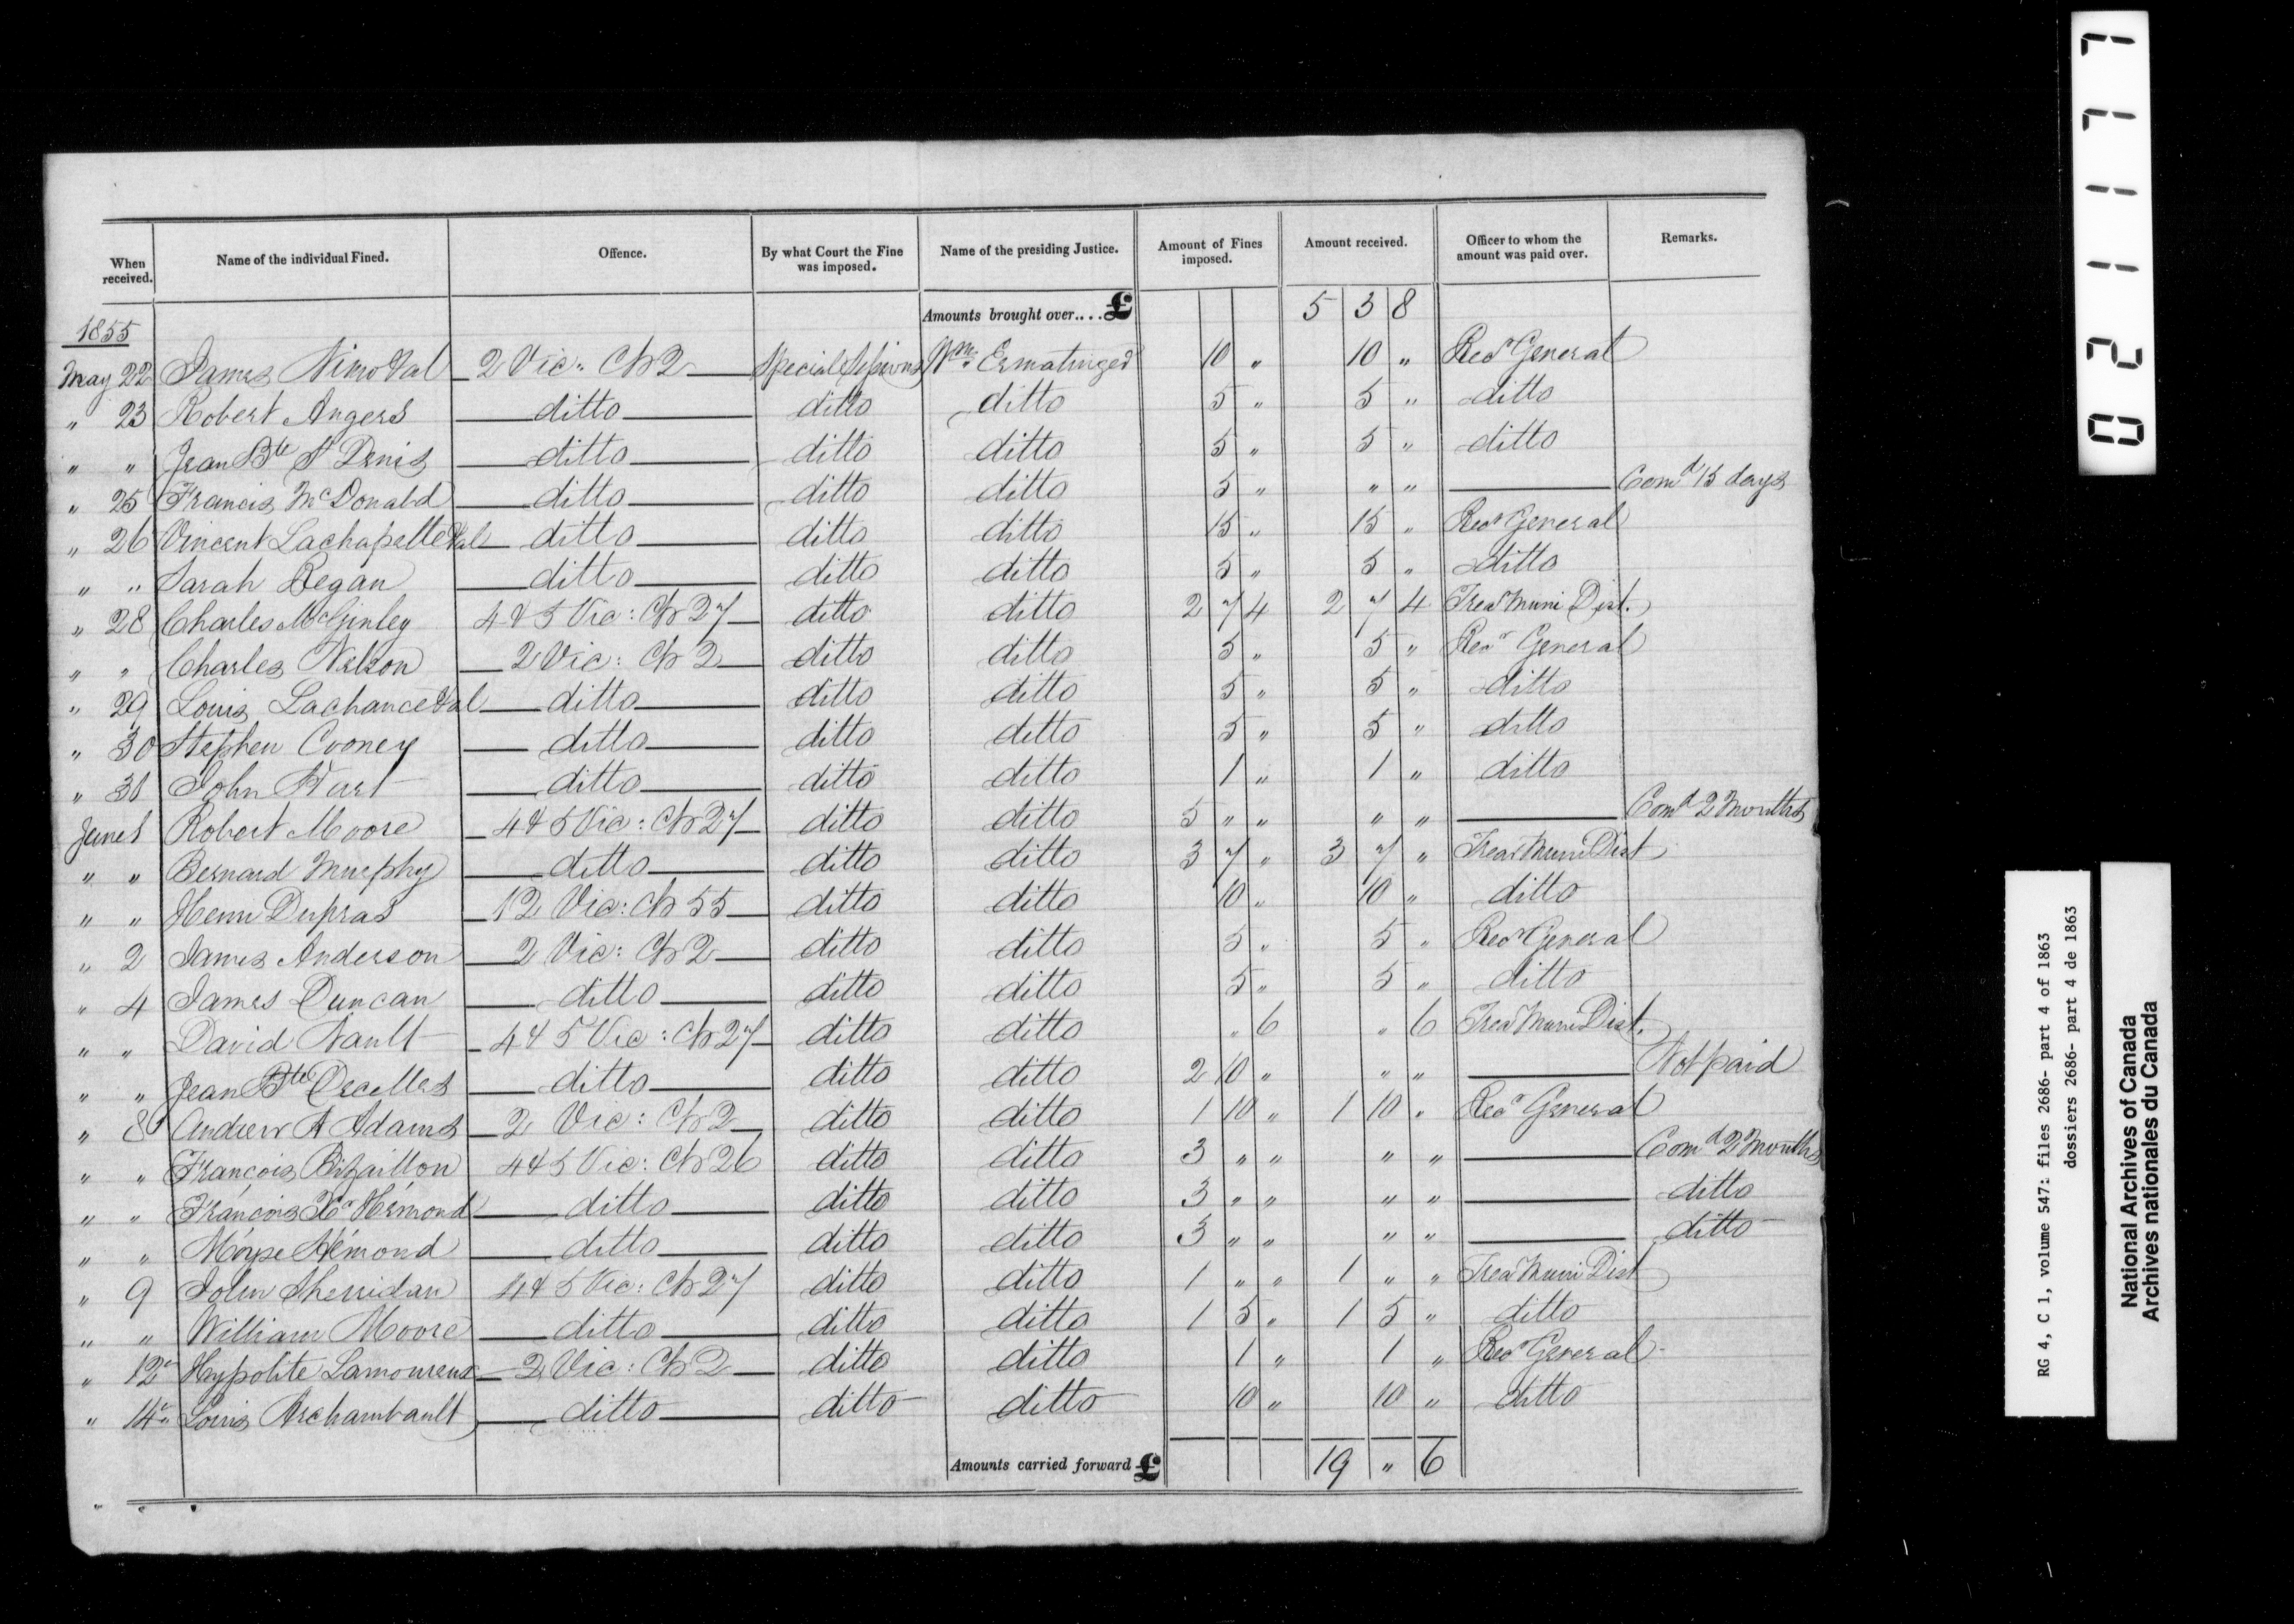 When received. Name of the individual Fined. Offence. By what Court the Fine was imposed. Name of the presiding Justice. Amount of Fines imposed. Amount received. Officer to whom the amount was paid over. Remarks.
Amounts brought over.... £ 5 3 8
1855
May 22 James Nimo &al 2 Vic: Ch 2 Special Sessions Wm. Ermatinger 10 " 10 " Recr General
" 23 Robert Angers ditto ditto ditto 5 " 5 " ditto
" " Jean Bte St Denis ditto ditto ditto 5 " 5 " ditto
" 25 Francis McDonald ditto ditto ditto 5 " " " Comd 15 days
" 26 Vincent Lachapelle &al ditto ditto ditto 15 " 15 " Recr General
" " Sarah Regan ditto ditto ditto 5 " 5 " ditto
" 28 Charles McGinley 4 & 5 Vic: Ch 27 ditto ditto 2 7 4 2 7 4 Treas Muni Dist.
" " Charles Nelson 2 Vic: Ch 2 ditto ditto 5 " 5 " Recr General
" 29 Louis Lachance &al ditto ditto ditto 5 " 5 " ditto
" 30 Stephen Cooney ditto ditto ditto 5 " 5 " ditto
" 31 John Hart ditto ditto ditto 1 " 1 " ditto
June 1 Robert Moore 4 & 5 Vic: Ch 27 ditto ditto 5 " " " " Comd 2 Months
" " Bernard Murphy ditto ditto ditto 3 7 " 3 7 " Treas Muni Dist
" " Henri Dupras 12 Vic: Ch 55 ditto ditto 10 " 10 " ditto
" 2 James Anderson 2 Vic: Ch 2 ditto ditto 5 " 5 " Recr General
" 4 James Duncan ditto ditto ditto 5 " 5 " ditto
" " David Nault 4 & 5 Vic: Ch 27 ditto ditto " 6 " 6 Treas Muni Dist.
" " Jean Bte Decelles ditto ditto ditto 2 10 " " " Not paid
" 8 Andrew A Adams 2 Vic: Ch 2 ditto ditto 1 10 " 1 10 " Recr General
" " François Bizaillon 4 & 5 Vic: Ch 26 ditto ditto 3 " " " " Comd 2 Months
" " François Xr Hémond ditto ditto ditto 3 " " " " ditto
" " Moyse Hémond ditto ditto ditto 3 " " " " ditto
" 9 John Sherridan 4 & 5 Vic: Ch 27 ditto ditto 1 " " 1 " " Treas Muni Dist
" " William Moore ditto ditto ditto 1 5 " 1 5 " ditto
" 12 Hypolite Lamoureux 2 Vic: Ch 2 ditto ditto 1 " 1 " Recr General
" 14 Louis Archambault ditto ditto ditto 10 " 10 " ditto
Amounts carried forward £ 19 " 6
021177
RG 4, C 1, volume 547: files 2686- part 4 of 1863
dossiers 2686- part 4 de 1863
National Archives of Canada
Archives nationales du Canada